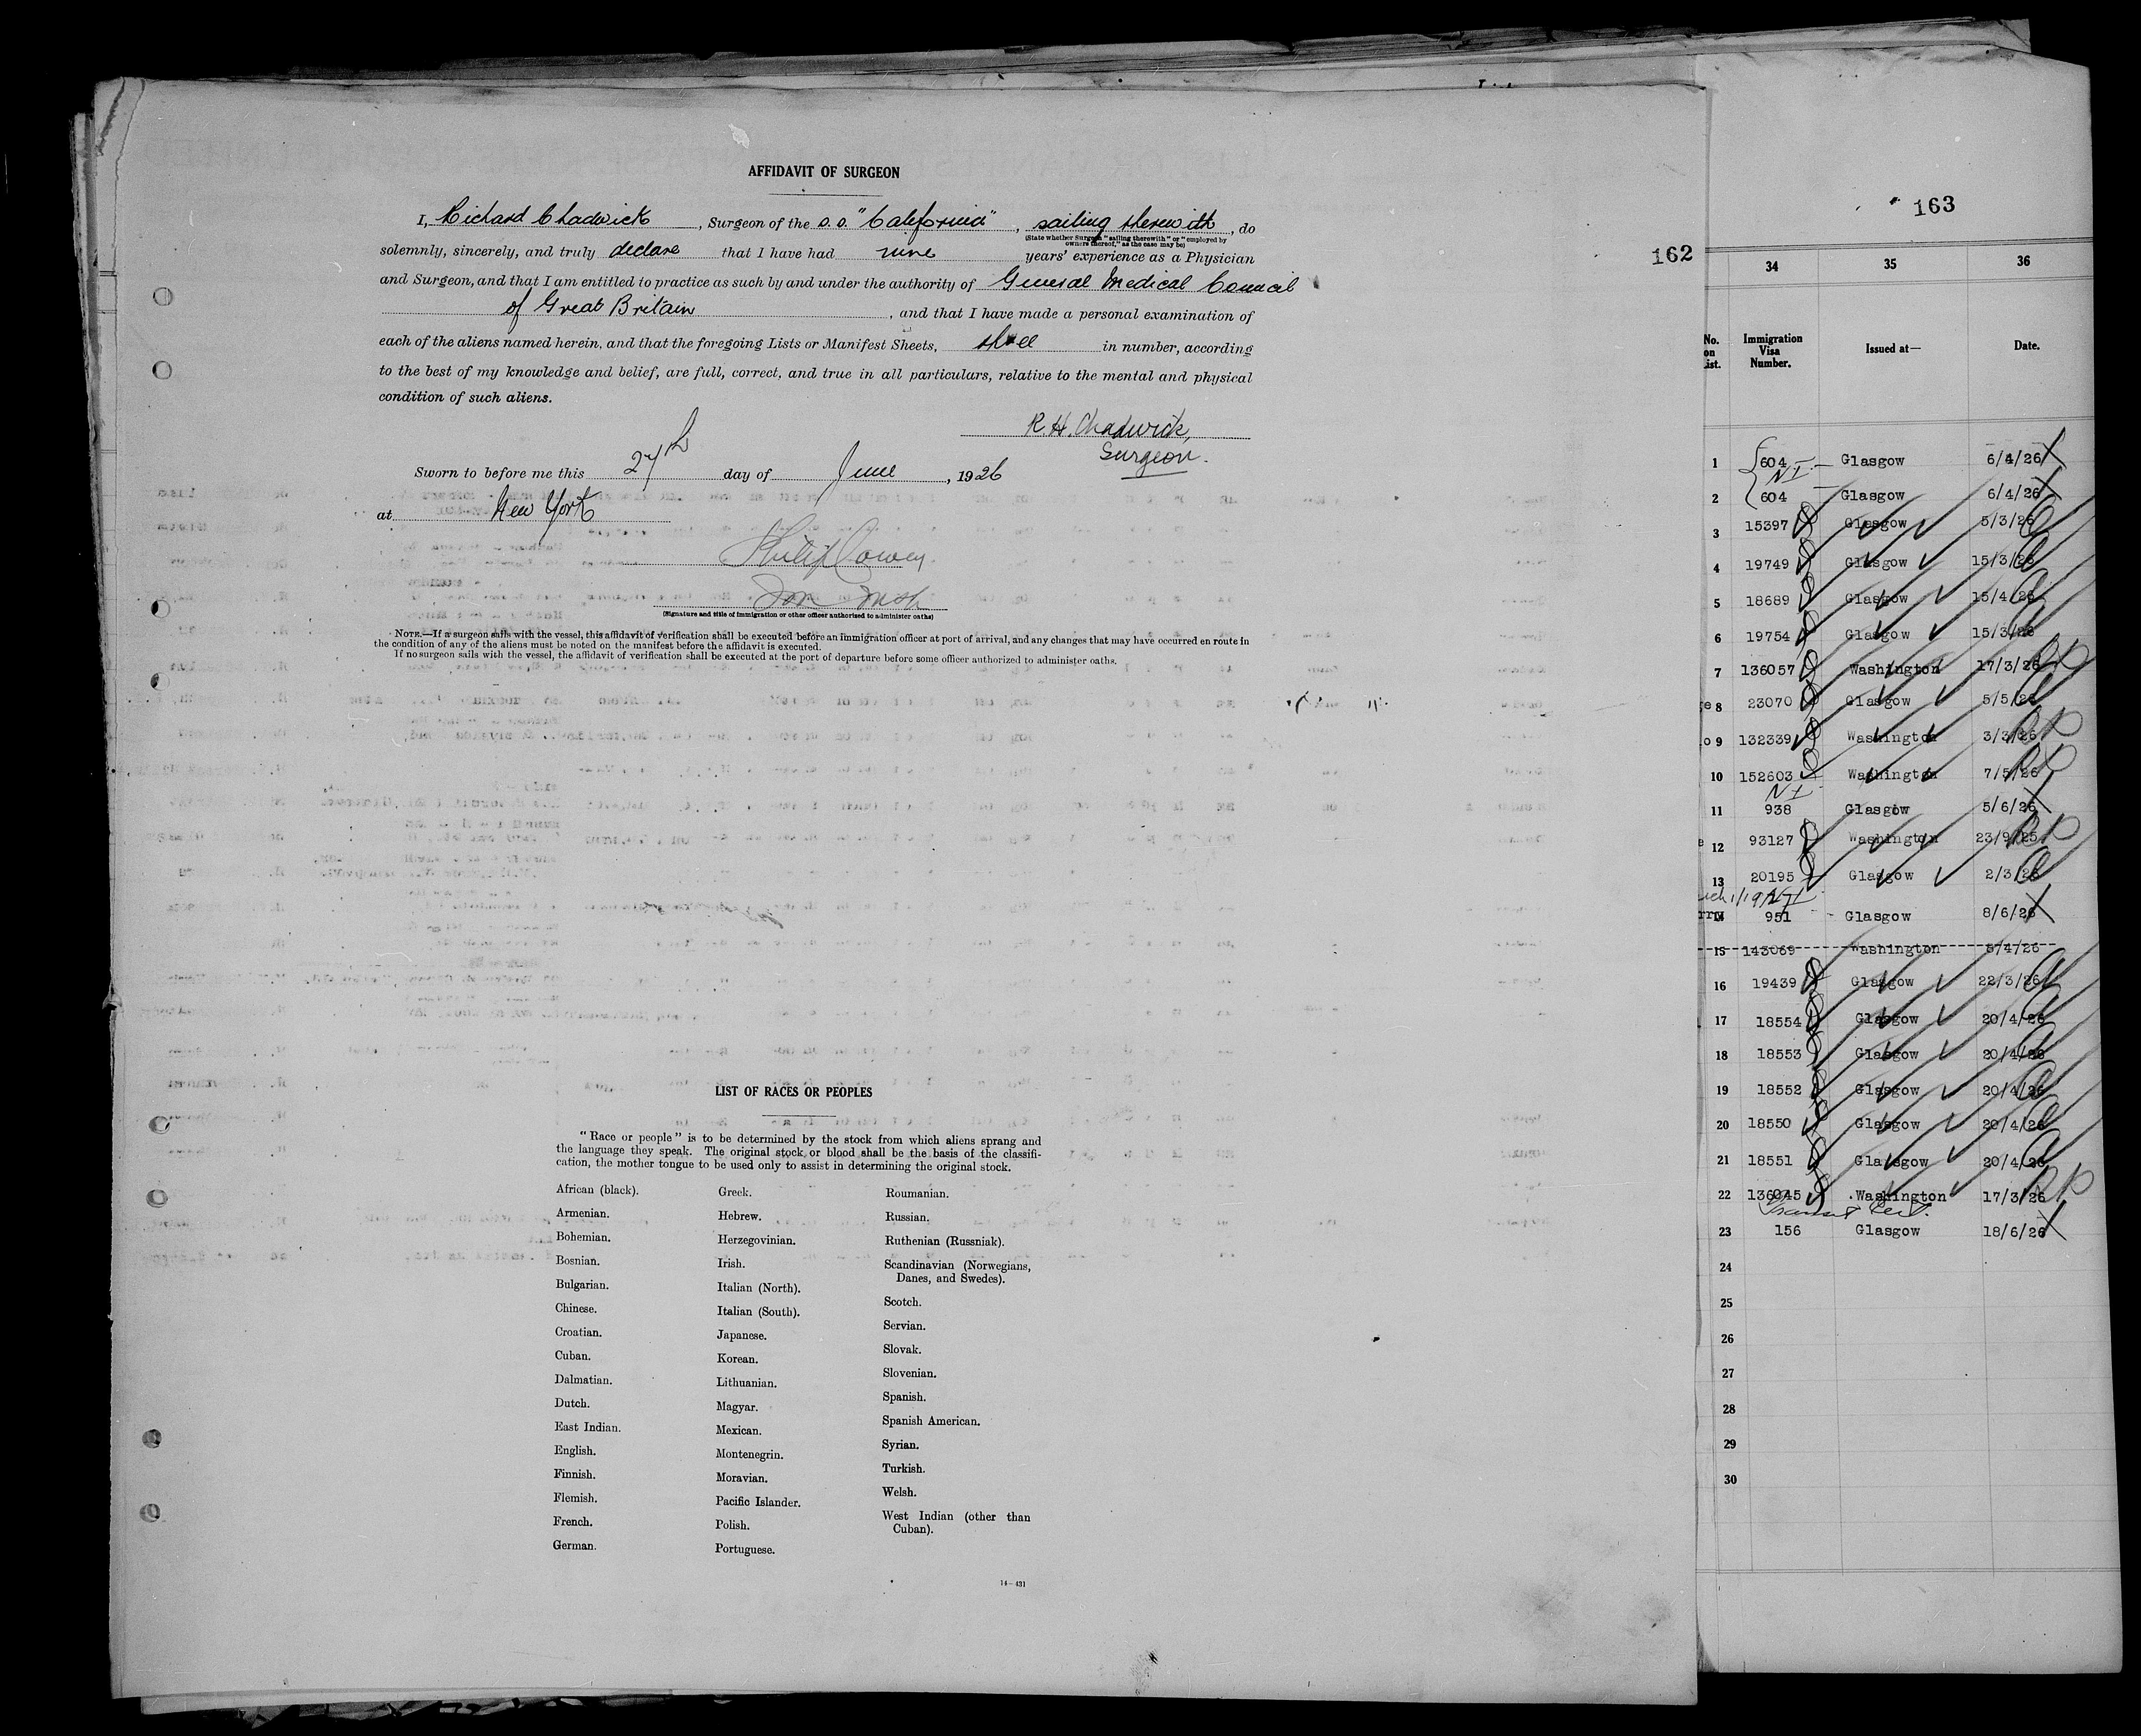 AFFIDAVIT OF SURGEON
I, Richard Chadwick, Surgeon of the s.s. "California", sailing therewith, do
(State whether Surgeon "sailing therewith" or "employed by
owners thereof," as the case may be)
solemnly, sincerely, and truly declare that I have had nine years' experience as a Physician
and Surgeon, and that I am entitled to practice as such by and under the authority of General Medical Council
of Great Britain, and that I have made a personal examination of
each of the aliens named herein, and that the foregoing Lists or Manifest Sheets, three in number, according
to the best of my knowledge and belief, are full, correct, and true in all particulars, relative to the mental and physical
condition of such aliens.
R. H. Chadwick,
Surgeon.
Sworn to before me this 27th day of June, 1926
at New York
Philip Cowen
(Signature and title of immigration or other officer authorized to administer oaths)
NOTE.—If a surgeon sails with the vessel, this affidavit of verification shall be executed before an immigration officer at port of arrival, and any changes that may have occurred en route in
the condition of any of the aliens must be noted on the manifest before the affidavit is executed.
If no surgeon sails with the vessel, the affidavit of verification shall be executed at the port of departure before some officer authorized to administer oaths.
LIST OF RACES OR PEOPLES
"Race or people" is to be determined by the stock from which aliens sprang and
the language they speak. The original stock or blood shall be the basis of the classifi-
cation, the mother tongue to be used only to assist in determining the original stock.
African (black).
Armenian.
Bohemian.
Bosnian.
Bulgarian.
Chinese.
Croatian.
Cuban.
Dalmatian.
Dutch.
East Indian.
English.
Finnish.
Flemish.
French.
German.
Greek.
Hebrew.
Herzegovinian.
Irish.
Italian (North).
Italian (South).
Japanese.
Korean.
Lithuanian.
Magyar.
Mexican.
Montenegrin.
Moravian.
Pacific Islander.
Polish.
Portuguese.
Roumanian.
Russian.
Ruthenian (Russniak).
Scandinavian (Norwegians,
Danes, and Swedes).
Scotch.
Servian.
Slovak.
Slovenian.
Spanish.
Spanish American.
Syrian.
Turkish.
Welsh.
West Indian (other than
Cuban).
14—431
162
163
34 35 36
No. on List. Immigration Visa Number. Issued at— Date.
1 604 Glasgow 6/4/26
N I
2 604 Glasgow 6/4/26
3 15397 Glasgow 5/3/26
4 19749 Glasgow 15/3/26
5 18689 Glasgow 15/4/26
6 19754 Glasgow 15/3/26
7 136057 Washington 17/3/26
8 23070 Glasgow 5/5/26
9 132339 Washington 3/3/26
10 152603 Washington 7/5/26
N I
11 938 Glasgow 5/6/26
12 93127 Washington 23/9/25
13 20195 Glasgow 2/3/26
14 951 Glasgow 8/6/26
15 143069 Washington 5/4/26
16 19439 Glasgow 22/3/26
17 18554 Glasgow 20/4/26
18 18553 Glasgow 20/4/26
19 18552 Glasgow 20/4/26
20 18550 Glasgow 20/4/26
21 18551 Glasgow 20/4/26
22 136045 Washington 17/3/26
Transit Cert.
23 156 Glasgow 18/6/26
24
25
26
27
28
29
30